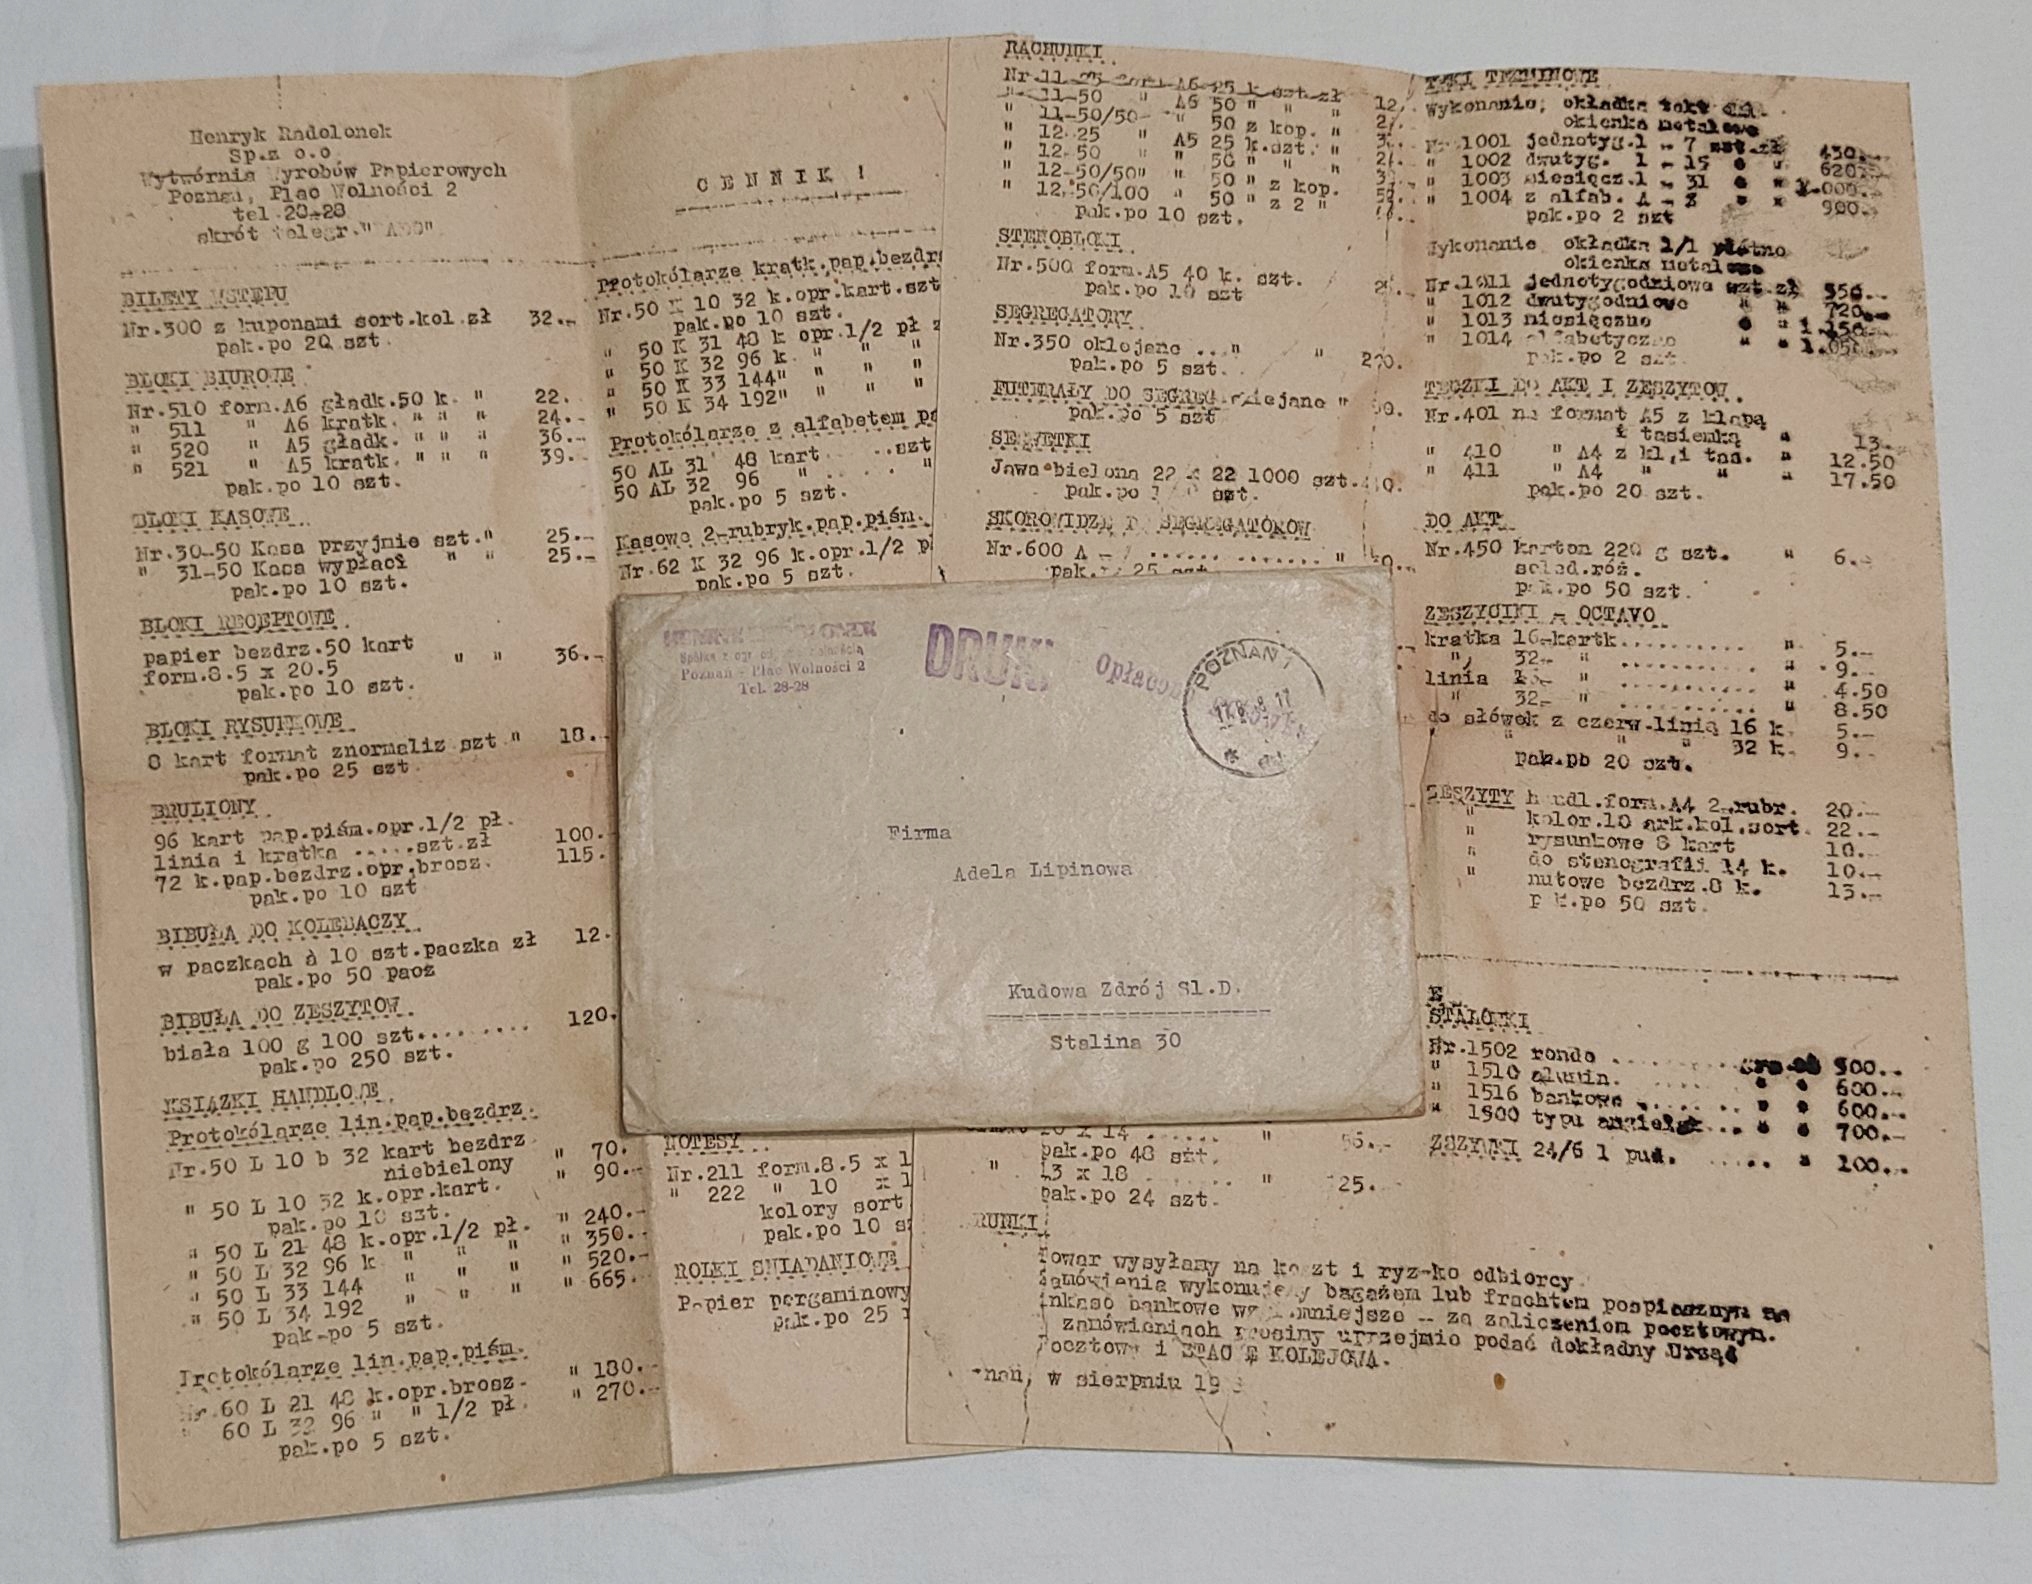 Henryk Radolonek
Sp.z o.o
Wytwórnia Wyrobów Papierowych
Poznań, Plac Wolności 2
tel 28-28
skrót telegr."
BILETY WSTĘPU
Nr.300 z kuponami sort.kol.zł 32.-
pak.po 20 szt.
BLOKI BIUROWE
Nr.510 form.A6 gładk.50 k. " 22.
" 511 " A6 kratk. " " " 24.-
" 520 " A5 gładk. " " " 36.-
" 521 " A5 kratk. " " " 39.-
pak.po 10 szt.
BLOKI KASOWE
Nr.30-50 Kasa przyjmie szt." 25.-
" 31-50 Kasa wypłaci " " 25.-
pak.po 10 szt.
BLOKI RECEPTOWE
papier bezdrz.50 kart
form.8.5 x 20.5 " " 36.-
pak.po 10 szt.
BLOKI RYSUNKOWE
8 kart format znormaliz szt " 18.-
pak.po 25 szt
BRULIONY
96 kart pap.piśm.opr.1/2 pł.
linia i kratka .....szt.zł 100.-
72 k.pap.bezdrz.opr.brosz. 115.-
pak.po 10 szt
BIBUŁA DO KOLEBACZY
w paczkach à 10 szt.paczka zł 12.
pak.po 50 pacz
BIBUŁA DO ZESZYTOW
biała 100 g 100 szt......... 120.
pak.po 250 szt.
KSIĄŻKI HANDLOWE
Protokólarze lin.pap.bezdrz.
Nr.50 L 10 b 32 kart bezdrz
niebielony " 70.
" 50 L 10 32 k.opr.kart. " 90.-
pak.po 10 szt.
" 50 L 21 48 k.opr.1/2 pł. " 240.-
" 50 L 32 96 k " " " " 350.-
" 50 L 33 144 " " " " 520.-
" 50 L 34 192 " " " " 665.
pak-po 5 szt.
Protokólarze lin.pap.piśm.
Nr.60 L 21 48 k.opr.brosz. " 180.-
" 60 L 32 96 " " 1/2 pł. " 270.-
pak.po 5 szt.
C E N N I K !
Protokólarze kratk.pap.bezdrz
Nr.50 K 10 32 k.opr.kart.szt
pak.po 10 szt.
" 50 K 31 48 k opr.1/2 pł z
" 50 K 32 96 k. " " "
" 50 K 33 144" " " "
" 50 K 34 192" " " "
Protokólarze z alfabetem pa
50 AL 31 48 kart ..szt
50 AL 32 96 " "
pak.po 5 szt.
Kasowe 2-rubryk.pap.piśm.
Nr.62 K 32 96 k.opr.1/2 p
pak.po 5 szt.
NOTESY
Nr.211 form.8.5 x 1
" 222 " 10 x 1
kolory sort
pak.po 10 s
ROLKI SNIADANIOWE
Papier pergaminowy
pak.po 25
RACHUNKI
Nr.11-25 form A6 25 k szt.zł
" 11-50 " A6 50 " " " 12,
" 11-50/50- " 50 z kop. "
" 12-25 " A5 25 k.szt. "
" 12-50 " " 50 " " "
" 12-50/50" " 50 " z kop.
" 12.50/100 " 50 " z 2 "
pak.po 10 szt.
STENOBLOKI
Nr.500 form.A5 40 k. szt.
pak.po 10 szt
SEGREGATORY
Nr.350 oklejane .. " "
pak.po 5 szt.
FUTERAŁY DO SEGREG
pak.po 5 szt
SERWETKI
Jawa bielona 22 x 22 1000 szt.
pak.po szt.
SKOROWIDZE DO SEGREGATOROW
Nr.600 A - ............ "
pak. 25 szt.
20 x 14 ...... "
pak.po 48 szt.
" 13 x 18 ....... "
pak.po 24 szt.
TEKI TERMINOWE
Wykonanie, okładka
okienka metalowe
Nr.1001 jednotyg.1 - 7 szt.zł 430.-
" 1002 dwutyg. 1 - 15 " " 620.-
" 1003 miesięcz.1 - 31 " " 1.000.-
" 1004 z alfab. A - Z " " 900.-
pak.po 2 szt
Wykonanie okładka 1/1 płótno
okienka metalowe
Nr.1011 jednotygodniowe szt.zł 550.-
" 1012 dwutygodniowe " " 720.-
" 1013 miesięczne " "
" 1014 alfabetyczne " "
pak.po 2 szt.
TECZKI DO AKT I ZESZYTOW.
Nr.401 na format A5 z klapą
i tasienką " 13.-
" 410 " A4 z kl,i tas. " 12.50
" 411 " A4 " " " 17.50
pak.po 20 szt.
DO AKT
Nr.450 karton 220 g szt. " 6.-
róż.
pak.po 50 szt.
ZESZYCIKI - OCTAVO
kratka 16-kartk.......... " 5.-
" 32- " .......... " 9.-
linia 16- " .......... " 4.50
" 32- " .......... " 8.50
do słówek z czerw.linią 16 k. 5.-
" " " 32 k. 9.-
pak.po 20 szt.
ZESZYTY handl.form.A4 2-rubr. 20.-
" kolor.10 ark.kol.sort. 22.-
" rysunkowe 8 kart 18.-
" do stenografii 14 k. 10.-
" nutowe bezdrz.8 k. 13.-
pak.po 50 szt.
STALOWKI
Nr.1502 rondo ........ 500.-
" 1510 alumin. ....... " " 600.-
" 1516 bankowe ....... " " 600.-
" 1900 typu angielsk... " " 700.-
ZSZYWKI 24/6 1 pud. ..... " 100.-
Towar wysyłamy na koszt i ryzyko odbiorcy.
Zamówienia wykonujemy bagażem lub frachtem pospiesznym za
inkaso bankowe mniejsze - za zaliczeniem pocztowym.
zamówieniach prosimy uprzejmie podać dokładny Urząd
Pocztowy i STACJĘ KOLEJOWĄ.
w sierpniu
Spółka z ogr. odpowiedzialnością
Poznań - Plac Wolności 2
Tel. 28-28
DRUKI
Opłacono
POZNAŃ 1
Firma
Adela Lipinowa
Kudowa Zdrój Sl.D.
Stalina 30